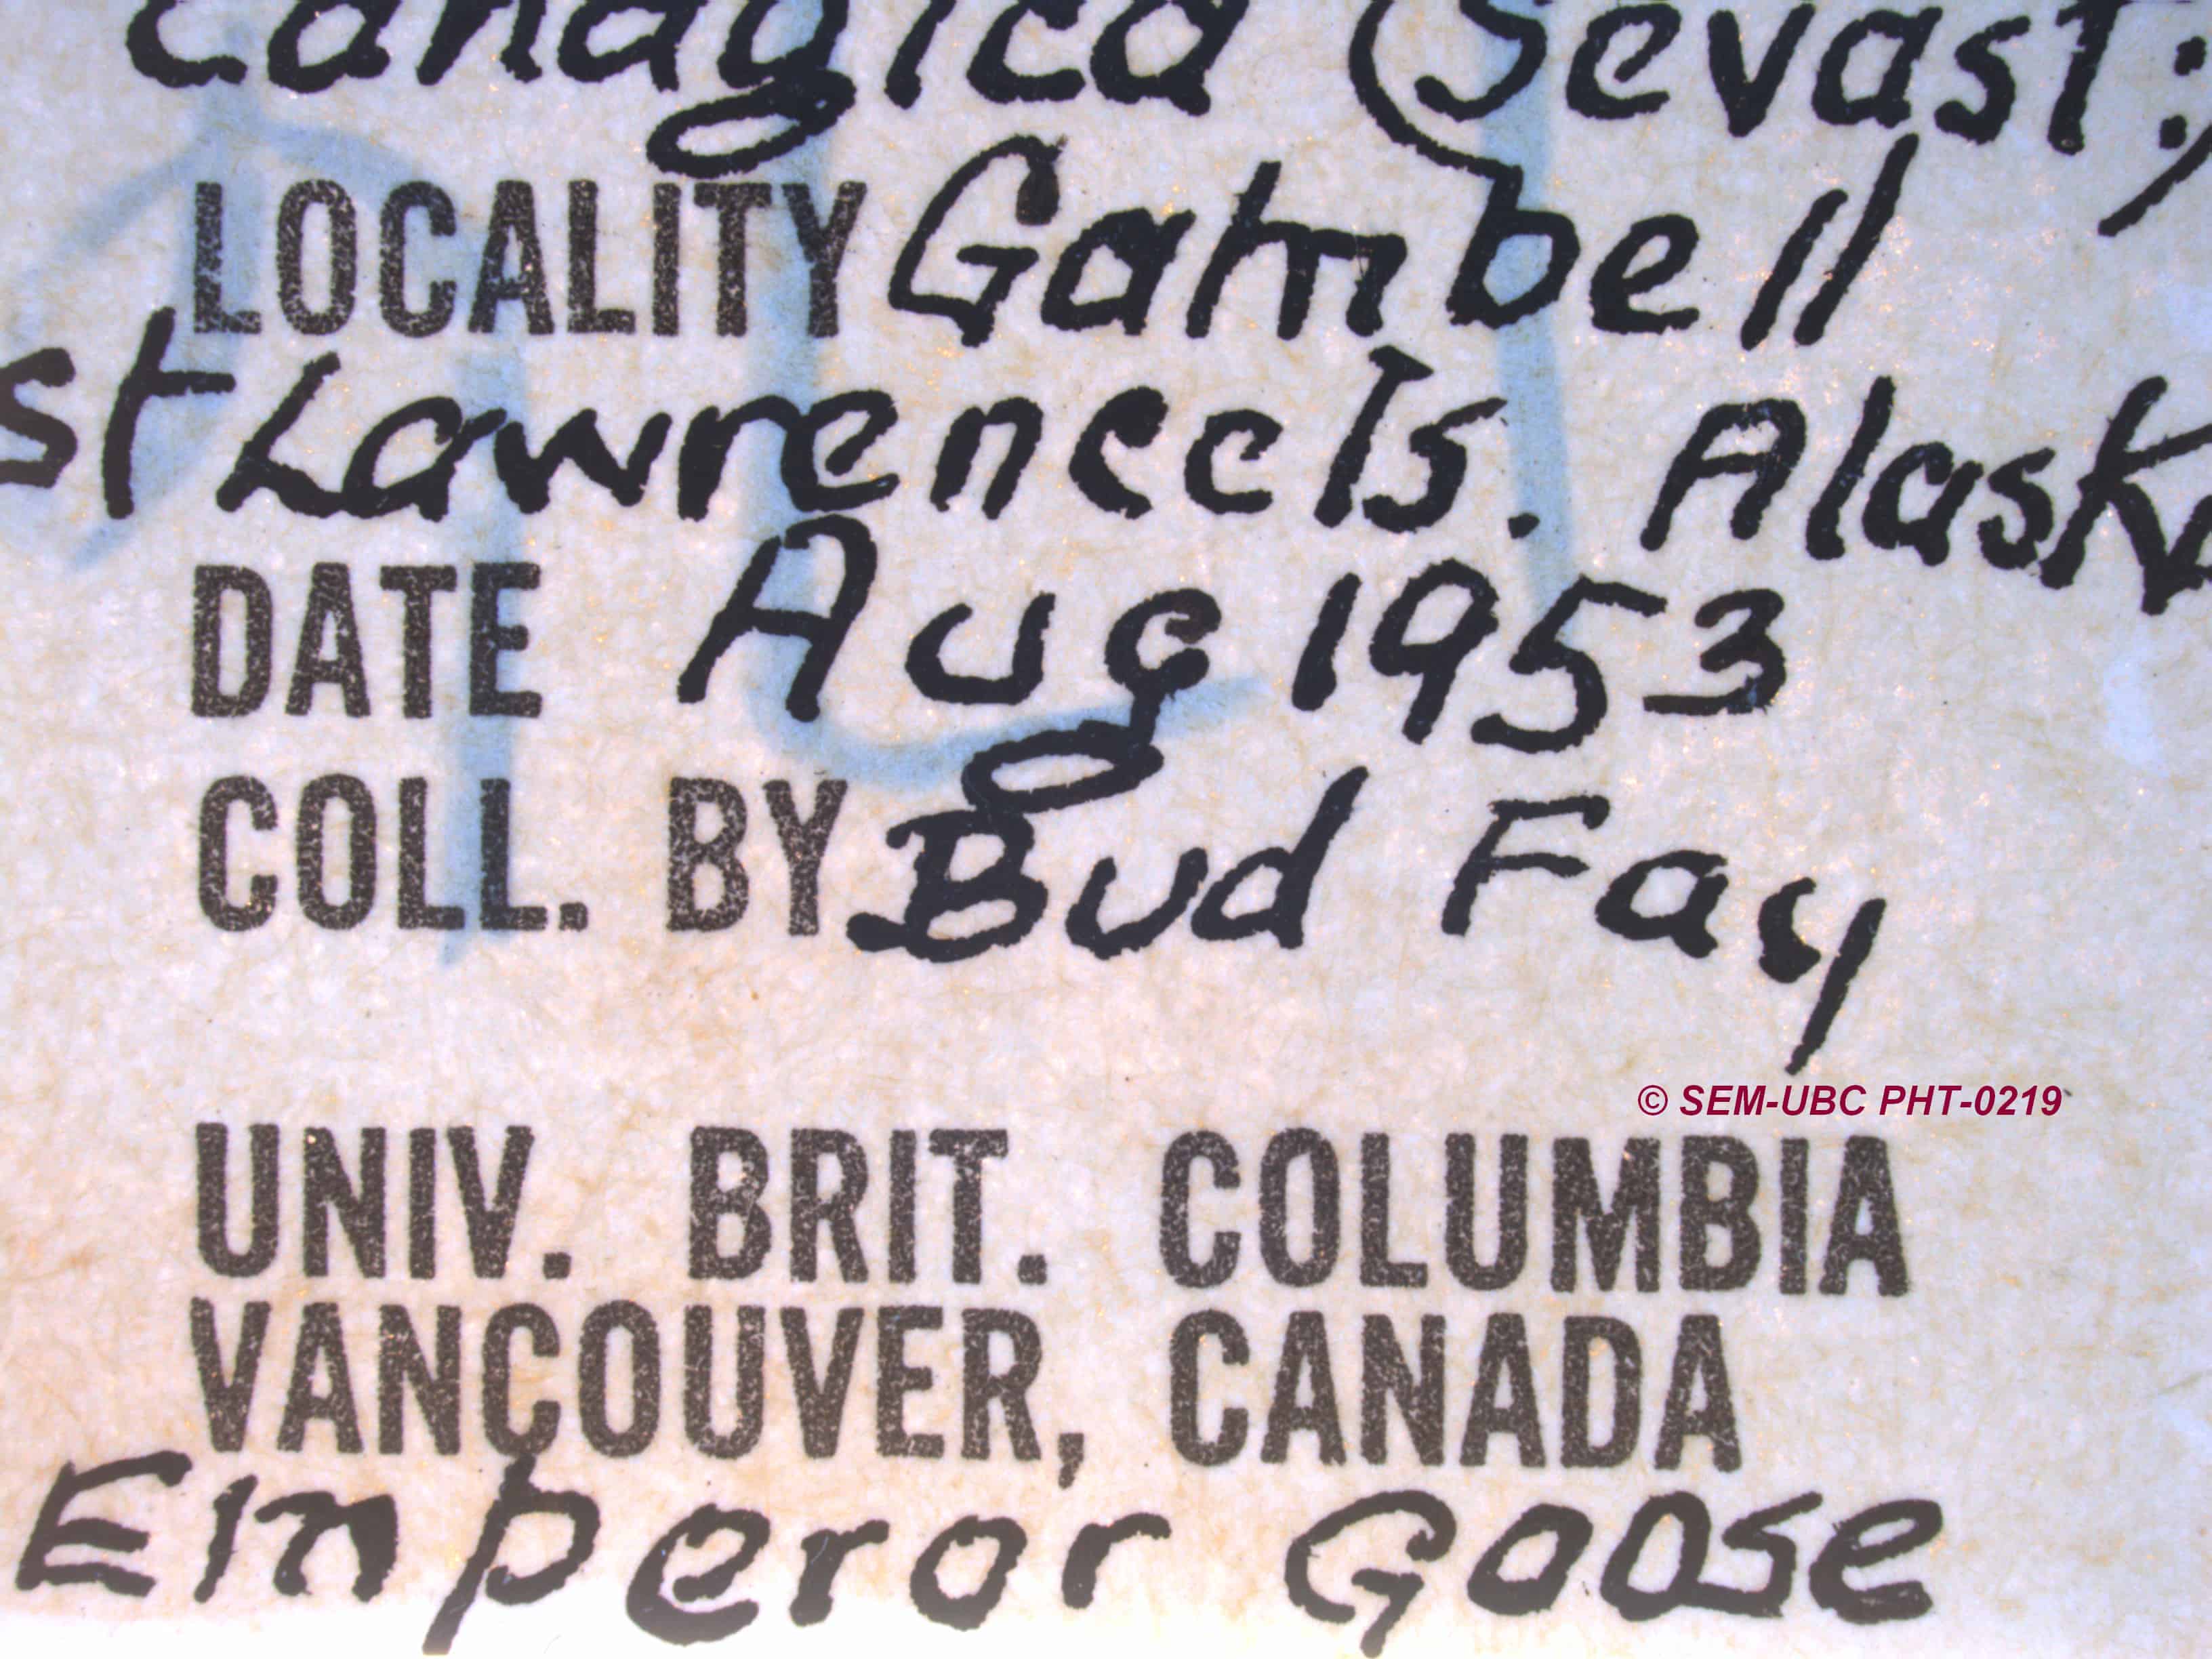 canagica (Sevast;)
LOCALITY Gambell
St Lawrence Is. Alaska
DATE Aug 1953
COLL. BY Bud Fay
© SEM-UBC PHT-0219
UNIV. BRIT. COLUMBIA
VANCOUVER, CANADA
Emperor Goose